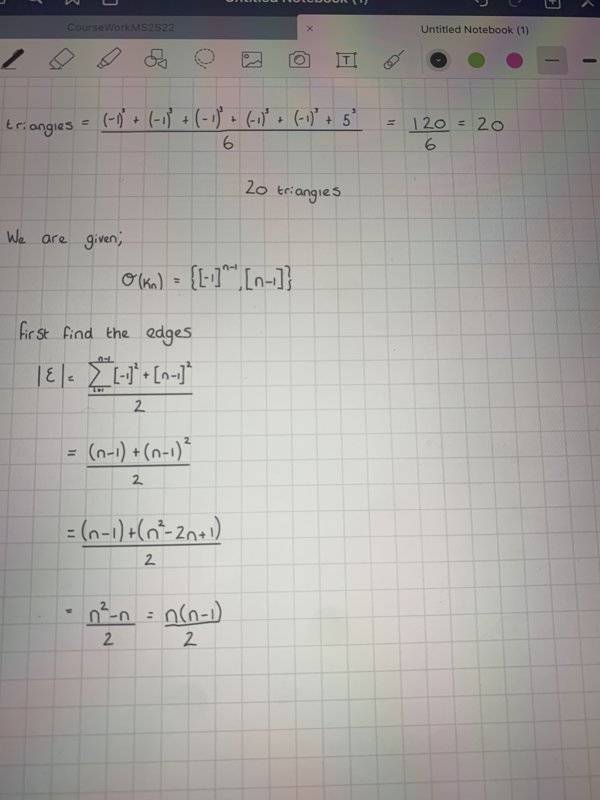 Untitled Notebook (1)
CourseWorkMS2S22 × Untitled Notebook (1)
T
triangles = (-1)³ + (-1)³ + (-1)³ + (-1)³ + (-1)³ + 5³ / 6 = 120 / 6 = 20
20 triangles
We are given;
σ(Kn) = {[-1]ⁿ⁻¹, [n-1]}
first find the edges
|ε| = n-1 ∑ i=1 [-1]² + [n-1]² / 2
= (n-1) + (n-1)² / 2
= (n-1) + (n² - 2n + 1) / 2
= n² - n / 2 = n(n-1) / 2